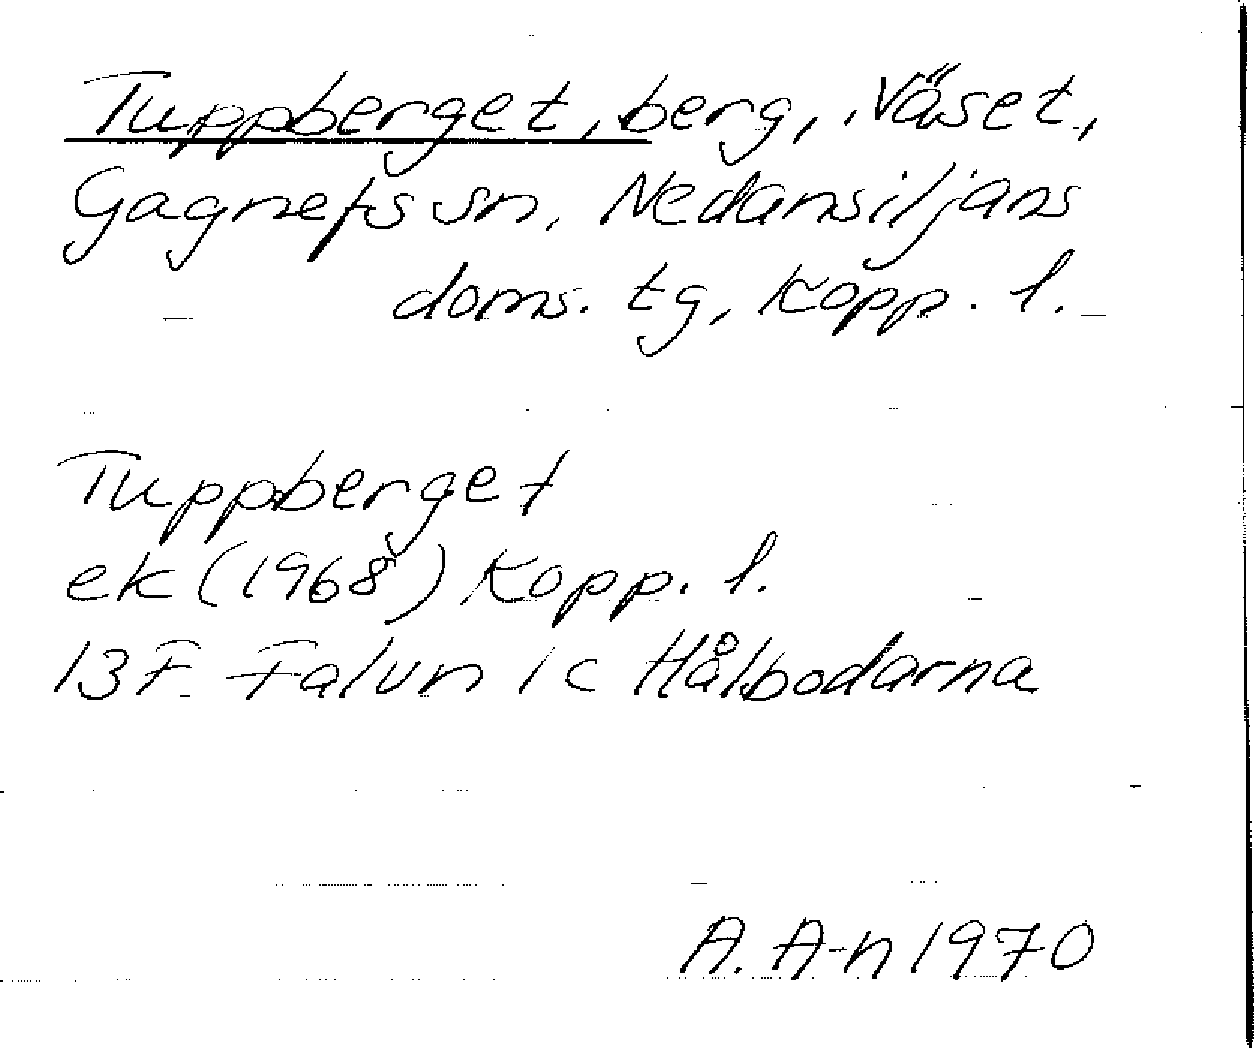 Tuppberget, berg, Väset,
Gagnefs sn, Nedansiljans
doms. tg, Kopp. l.
Tuppberget
ek (1968) Kopp. l.
13F Falun 1c Hålbodarna
A. A-n 1970